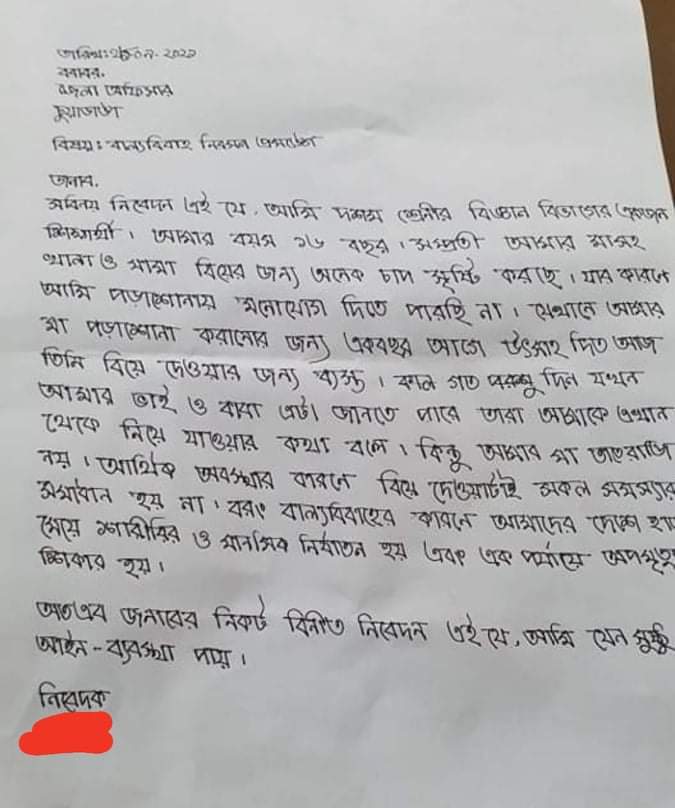 তারিখ: ২৮-০৭-২০২১
বরাবর,
জেলা অফিসার
চুয়াডাঙ্গা
বিষয়: বাল্যবিবাহ নিরসন প্রসঙ্গে
জনাব,
সবিনয় নিবেদন এই যে, আমি দশম শ্রেণীর বিজ্ঞান বিভাগের একজন
শিক্ষার্থী। আমার বয়স ১৬ বছর। সম্প্রতী আমার মাসহ
খালা ও মামা বিয়ের জন্য অনেক চাপ সৃষ্টি করছে। যার কারনে
আমি পড়াশোনায় মনোযোগ দিতে পারছি না। যেখানে আমার
মা পড়াশোনা করানোর জন্য একবছর আগে উৎসাহ দিত আজ
তিনি বিয়ে দেওয়ার জন্য ব্যস্ত। কাল গত পরশু দিন যখন
আমার ভাই ও বাবা এটা জানতে পারে তারা আমাকে এখান
থেকে নিয়ে যাওয়ার কথা বলে। কিন্তু আমার মা তাতে রাজি
নয়। আর্থিক অবস্থার কারনে বিয়ে দেওয়াটাই সকল সমস্যার
সমাধান হয় না। বরং বাল্যবিবাহের কারনে আমাদের দেশে
মেয়ে শারীরির ও মানসিক নির্যাতন হয় এবং এক পর্যায়ে
শিকার হয়।
অতএব জনাবের নিকট বিনীত নিবেদন এই যে, আমি যেন সুষ্ঠু
আইন-ব্যবস্থা পায়।
নিবেদক